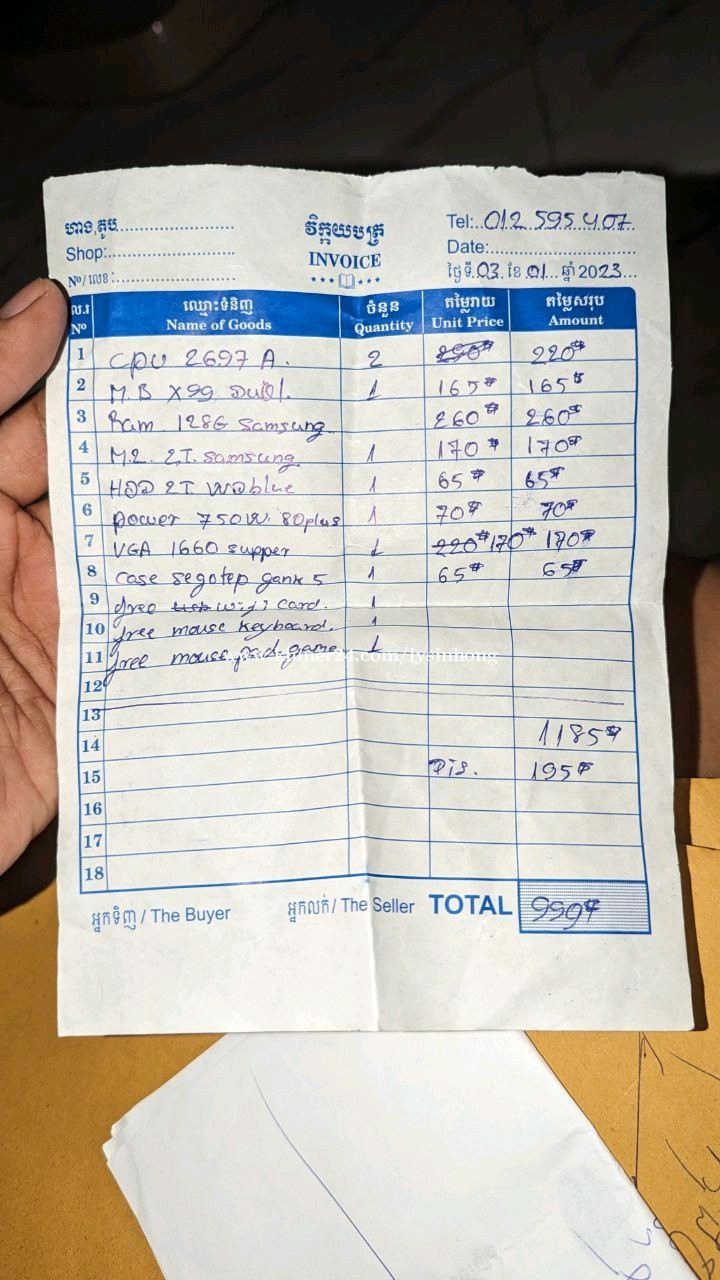 ហាង,តូប........................
Shop:........................
Nº/លេខ:........................
វិក្កយបត្រ
INVOICE
Tel:..012 595 407
Date:........................
ថ្ងៃទី.03. ខែ 01... ឆ្នាំ 2023...
ល.រ ឈ្មោះទំនិញ ចំនួន តម្លៃរាយ តម្លៃសរុប
Nº Name of Goods Quantity Unit Price Amount
1 CPU 2697 A. 2 290$ 220$
2 M.B X99 Dual. 1 165$ 165$
3 Ram 128G Samsung 260$ 260$
4 M.2. 2T. Samsung 1 170$ 170$
5 HDD 2T WD blue 1 65$ 65$
6 power 750W. 80plus 1 70$ 70$
7 VGA 1660 supper 1 220$ 170$ 170$
8 case segotep gank 5 1 65$ 65$
9 free wifi card. 1
10 free mouse keyboard. 1
11 free mouse pad game 1
12
13
14 1185$
15 Dis. 195$
16
17
18
អ្នកទិញ / The Buyer អ្នកលក់ / The Seller TOTAL 990$